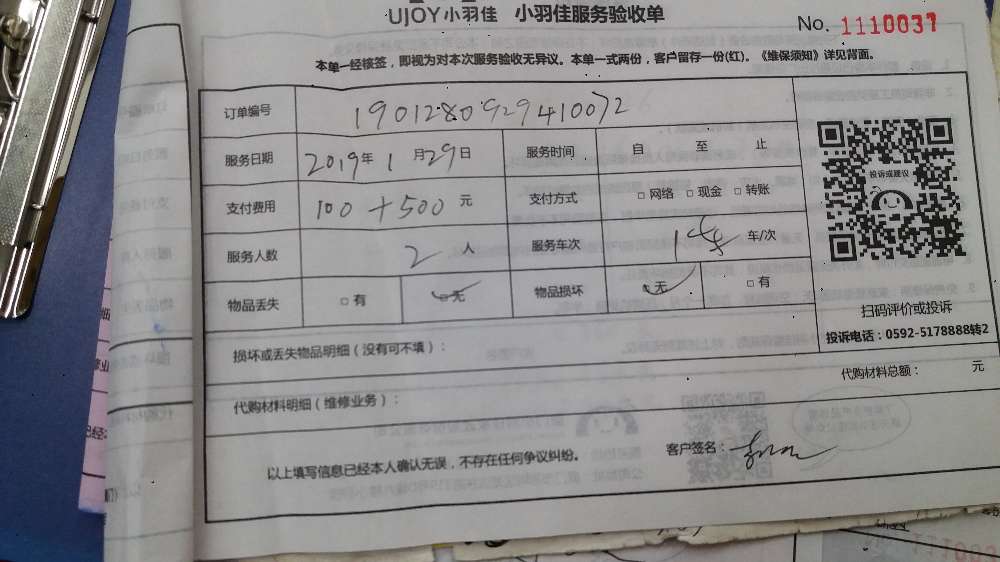 UJOY小羽佳 小羽佳服务验收单
No. 1110037
本单一经核签，即视为对本次服务验收无异议。本单一式两份，客户留存一份(红)。《维保须知》详见背面。
订单编号 1901280929410072
服务日期 2019年1月29日 服务时间 自 至 止
支付费用 100+500元 支付方式 □网络 □现金 □转账
服务人数 2人 服务车次 1车/次
物品丢失 □有 □无 物品损坏 □无 □有
投诉或建议
扫码评价或投诉
投诉电话：0592-5178888转2
损坏或丢失物品明细（没有可不填）：
代购材料明细（维修业务）： 代购材料总额： 元
以上填写信息已经本人确认无误，不存在任何争议纠纷。 客户签名：